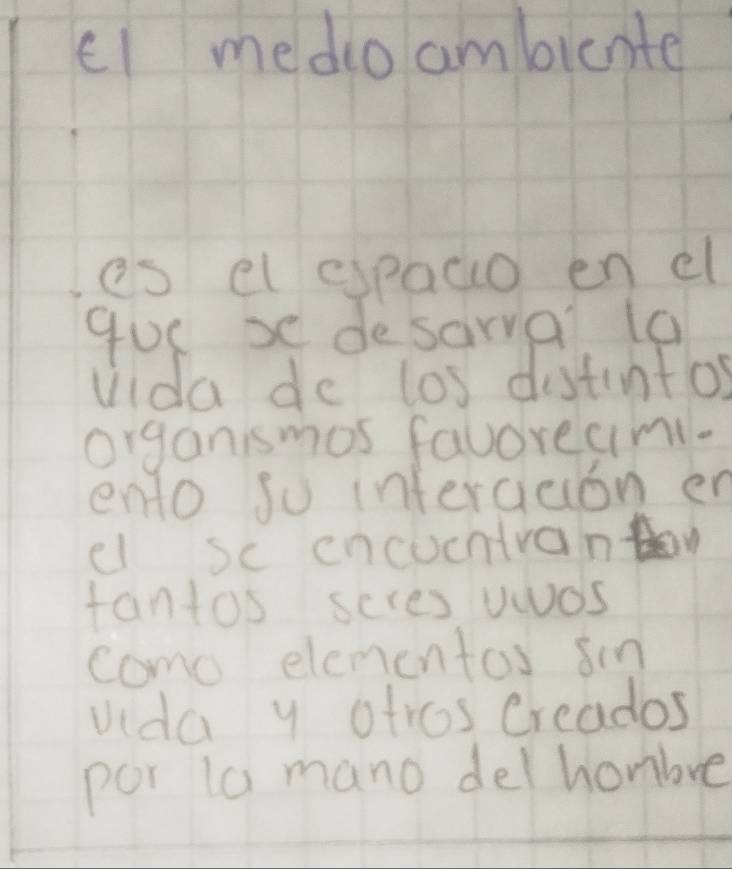 el medio ambiente
.es el espacio en el
que se desarra la
vida de los distintos
organismos favorecimi-
ento su interación en
el se encuentran
tantos seres vivos
como elementos sin
vida y otros creados
por la mano del hombre